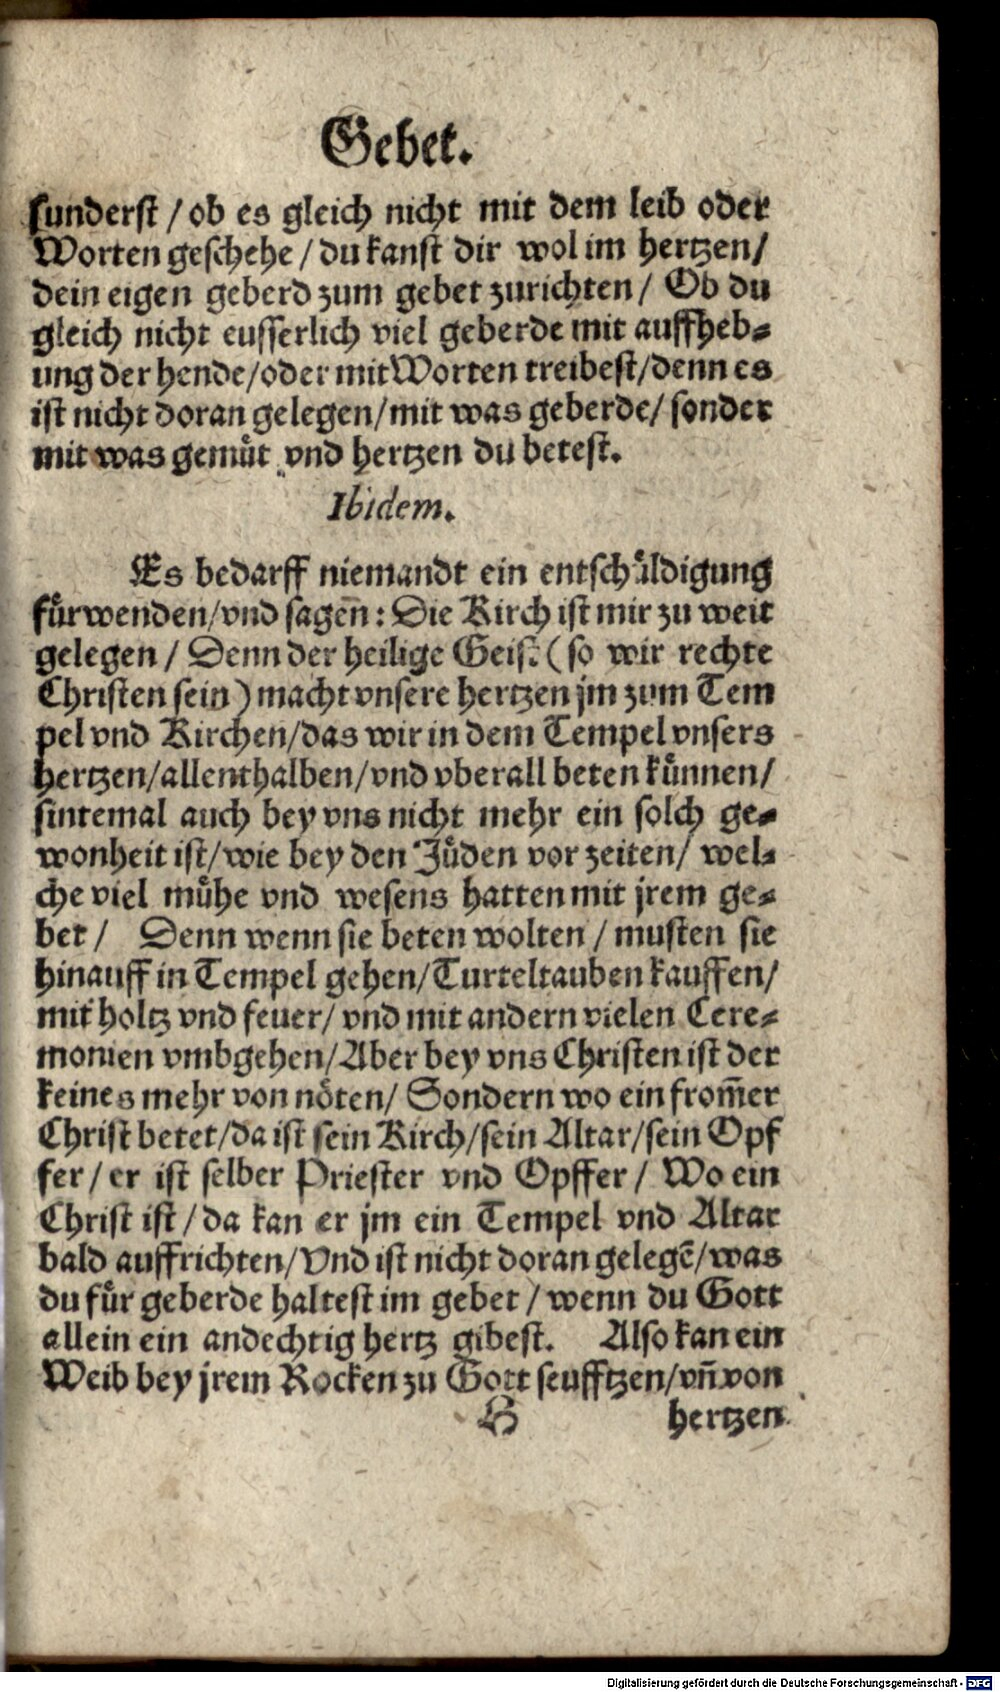 Gebet.
sunderst / ob es gleich nicht mit dem leib oder
Worten geschehe / du kanst dir wol im hertzen /
dein eigen geberd zum gebet zurichten / Ob du
gleich nicht eusserlich viel geberde mit auffheb-
ung der hende / oder mit Worten treibest / denn es
ist nicht doran gelegen / mit was geberde / sonder
mit was gemuͤt vnd hertzen du betest.
Ibidem.
Es bedarff niemandt ein entschuͤldigung
fuͤrwenden / vnd sagen̄: Die Kirch ist mir zu weit
gelegen / Denn der heilige Geist (so wir rechte
Christen sein) macht vnsere hertzen jm zum Tem
pel vnd Kirchen / das wir in dem Tempel vnsers
hertzen / allenthalben / vnd vberall beten kuͤnnen /
sintemal auch bey vns nicht mehr ein solch ge-
wonheit ist / wie bey den Juͤden vor zeiten / wel-
che viel muͤhe vnd wesens hatten mit jrem ge-
bet / Denn wenn sie beten wolten / musten sie
hinauff in Tempel gehen / Turteltauben kauffen /
mit holtz vnd feuer / vnd mit andern vielen Cere-
monien vmbgehen / Aber bey vns Christen ist der
keines mehr von noͤten / Sondern wo ein from̄er
Christ betet / da ist sein Kirch / sein Altar / sein Opf
fer / er ist selber Priester vnd Opffer / Wo ein
Christ ist / da kan er jm ein Tempel vnd Altar
bald auffrichten / Vnd ist nicht doran gelegē / was
du fuͤr geberde haltest im gebet / wenn du Gott
allein ein andechtig hertz gibest. Also kan ein
Weib bey jrem Rocken zu Gott seufftzen / vn̄ von
B hertzen
Digitalisierung gefördert durch die Deutsche Forschungsgemeinschaft - DFG